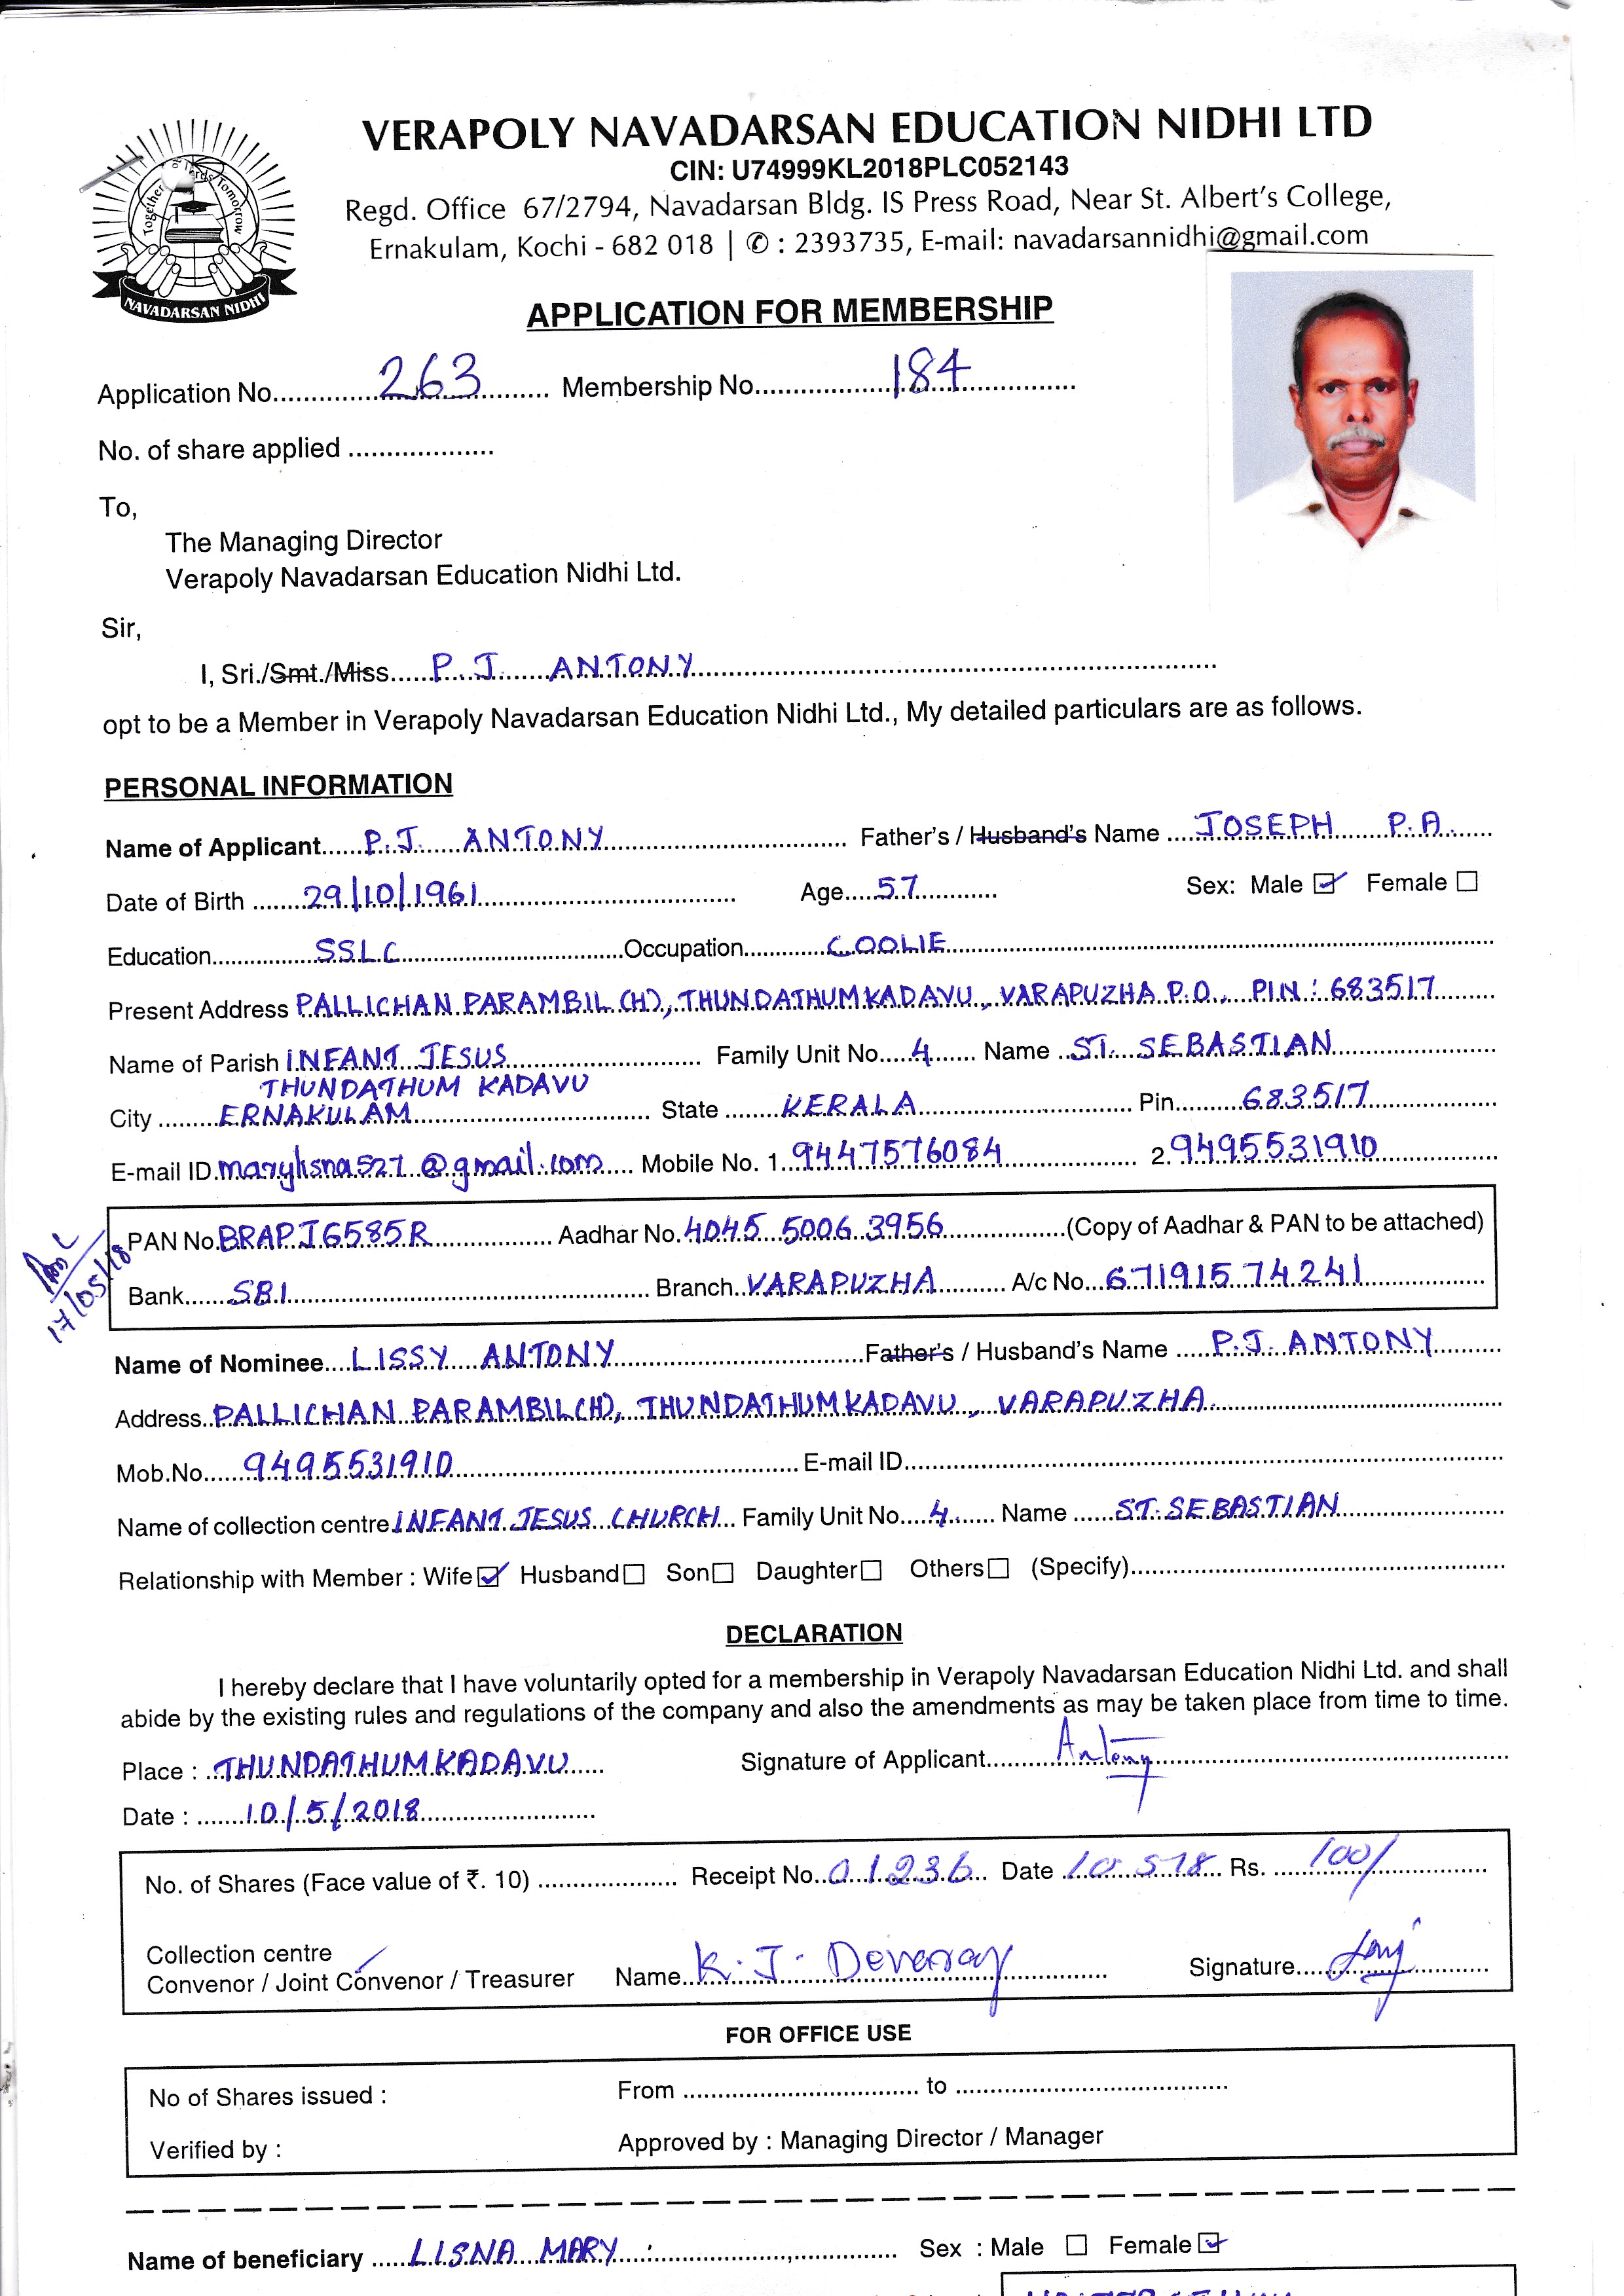 VERAPOLY NAVADARSAN EDUCATION NIDHI LTD
CIN: U74999KL2018PLC052143
Regd. Office 67/2794, Navadarsan Bldg. IS Press Road, Near St. Albert's College,
Ernakulam, Kochi - 682 018 | ✆ : 2393735, E-mail: navadarsannidhi@gmail.com
Together Towards Tomorrow
NAVADARSAN NIDHI
APPLICATION FOR MEMBERSHIP
Application No. 263 Membership No. 184
No. of share applied
To,
The Managing Director
Verapoly Navadarsan Education Nidhi Ltd.
Sir,
I, Sri./Smt./Miss P.J. ANTONY
opt to be a Member in Verapoly Navadarsan Education Nidhi Ltd., My detailed particulars are as follows.
PERSONAL INFORMATION
Name of Applicant P.J. ANTONY Father's / Husband's Name JOSEPH P.A.
Date of Birth 29/10/1961 Age 57 Sex: Male ☑ Female ☐
Education SSLC Occupation COOLIE
Present Address PALLICHAN PARAMBIL (H), THUNDATHUMKADAVU, VARAPUZHA P.O, PIN: 683517
Name of Parish INFANT JESUS Family Unit No. 4 Name ST. SEBASTIAN
THUNDATHUM KADAVU
City ERNAKULAM State KERALA Pin 683517
E-mail ID marylisna527@gmail.com Mobile No. 1. 9447576084 2. 9495531910
PAN No. BRAPJ6585R Aadhar No. 4045 5006 3956 (Copy of Aadhar & PAN to be attached)
17/05/18
Bank SBI Branch VARAPUZHA A/c No. 67191574241
Name of Nominee LISSY ANTONY Father's / Husband's Name P.J. ANTONY
Address PALLICHAN PARAMBIL(H), THUNDATHUMKADAVU, VARAPUZHA
Mob.No. 9495531910 E-mail ID
Name of collection centre INFANT JESUS CHURCH Family Unit No. 4 Name ST. SEBASTIAN
Relationship with Member : Wife ☑ Husband ☐ Son ☐ Daughter ☐ Others ☐ (Specify)
DECLARATION
I hereby declare that I have voluntarily opted for a membership in Verapoly Navadarsan Education Nidhi Ltd. and shall
abide by the existing rules and regulations of the company and also the amendments as may be taken place from time to time.
Place : THUNDATHUMKADAVU Signature of Applicant Antony
Date : 10/5/2018
No. of Shares (Face value of ₹. 10) Receipt No. 01236 Date 10.5.18 Rs. 100/
Collection centre
Convenor / Joint Convenor / Treasurer Name K.J. Devaray Signature
FOR OFFICE USE
No of Shares issued : From to
Verified by : Approved by : Managing Director / Manager
Name of beneficiary LISNA MARY Sex : Male ☐ Female ☑